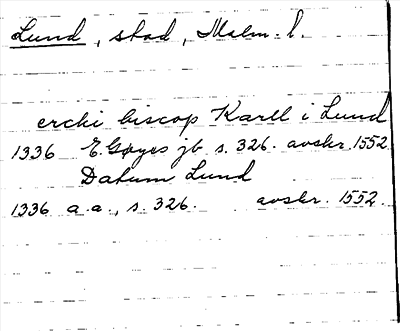 Lund, stad, Malm. l.
ercki biscop Karll i Lund
1336 E. Gøyes jb s. 326. avskr. 1552.
Datum Lund
1336 a.a., s. 326. avskr. 1552.